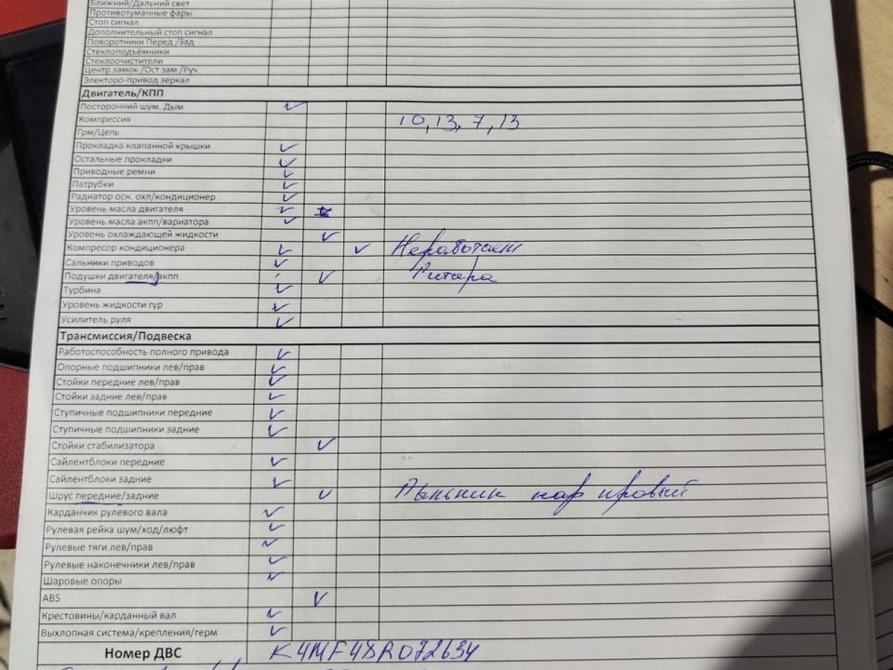 Ближний/Дальний свет
Противотуманные фары
Стоп сигнал
Дополнительный стоп сигнал
Поворотники Перед /Зад
Стеклоподъёмники
Стеклоочистители
Центр замок /Ост зам /Руч
Электоро-привод зеркал
Двигатель/КПП
Посторонний шум. Дым
Компрессия 10, 13, 7, 13
Грм/Цепь
Прокладка клапанной крышки
Остальные прокладки
Приводные ремни
Патрубки
Радиатор осн. охл/кондиционер
Уровень масла двигателя
Уровень масла акпп/вариатора
Уровень охлаждающей жидкости
Компресор кондиционера Неработает
Сальники приводов
Подушки двигателя/акпп
Турбина
Уровень жидкости гур
Усилитель руля
Трансмиссия/Подвеска
Работоспособность полного привода
Опорные подшипники лев/прав
Стойки передние лев/прав
Стойки задние лев/прав
Ступичные подшипники передние
Ступичные подшипники задние
Стойки стабилизатора
Сайлентблоки передние
Сайлентблоки задние
Шрус передние/задние Пыльник нар правый
Карданчик рулевого вала
Рулевая рейка шум/ход/люфт
Рулевые тяги лев/прав
Рулевые наконечники лев/прав
Шаровые опоры
ABS
Крестовины/карданный вал
Выхлопная система/крепления/герм
Номер ДВС K4MF48R072634